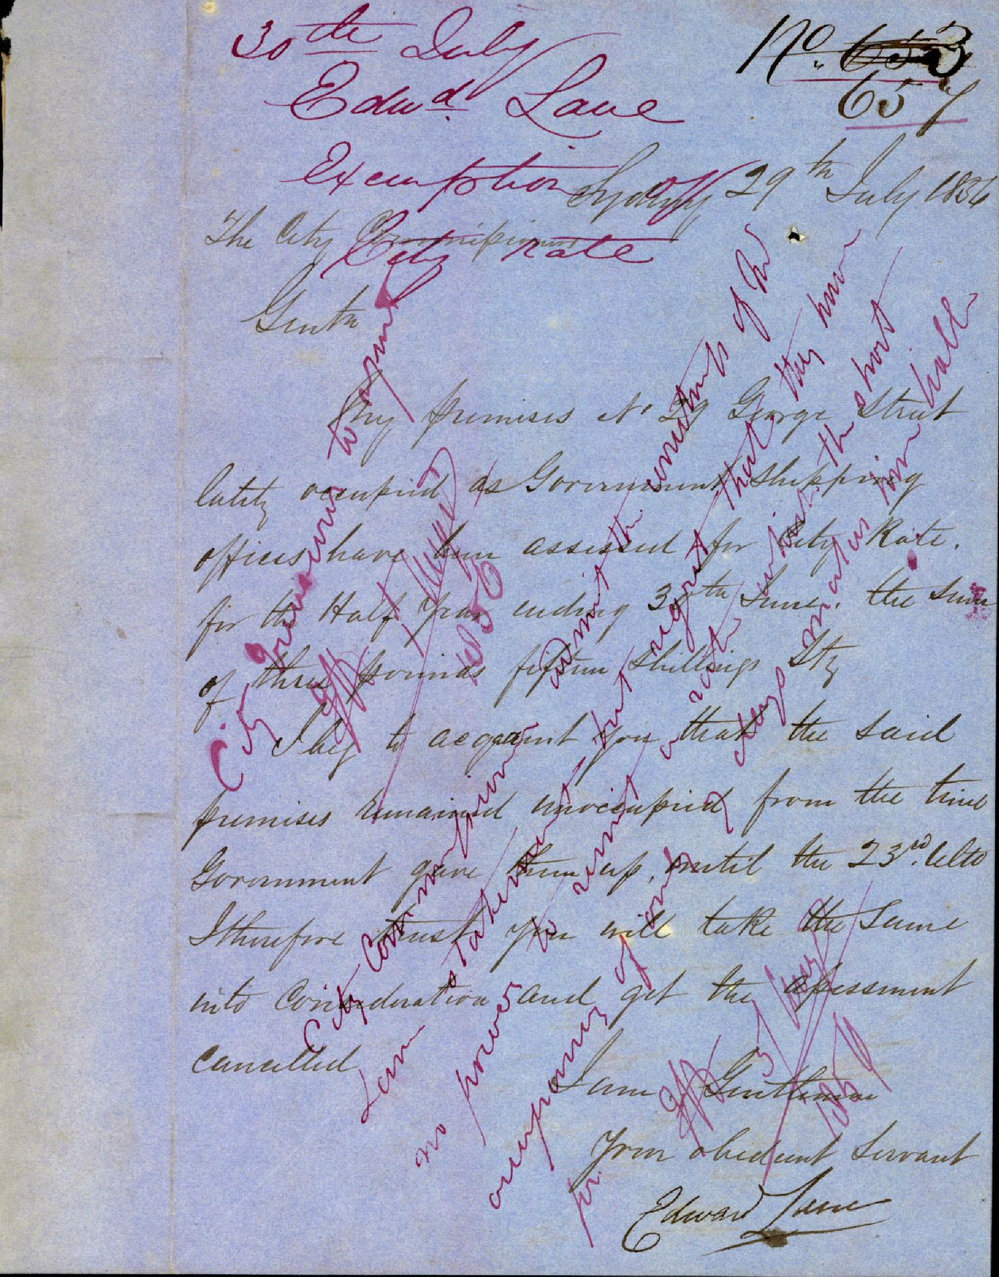 30th July
Edwd. Lane
Exemption of
City rate
No. 653
657
Sydney 29th July 1856
The City Commissioners
Gentn
My premises No 29 George Street
lately occupied as Government Shipping
offices have been assessed for City Rate.
for the Half Year ending 30th June. the Sum
of three pounds fifteen shillings Stg
I beg to acquaint you that the said
premises remained unoccupied from the time
Government gave them up, until the 23rd. Ulto
I therefore trust you will take the Same
into Consideration and get the assessment
cancelled
I am Gentlemen
Your obedient Servant
Edward Lane
City Surveyor to report
1856
City Commissioners admit the correctness of Mr
Lane statement, but regret that they have
no power to remit a rate within the short
occupancy of only days in half
1856